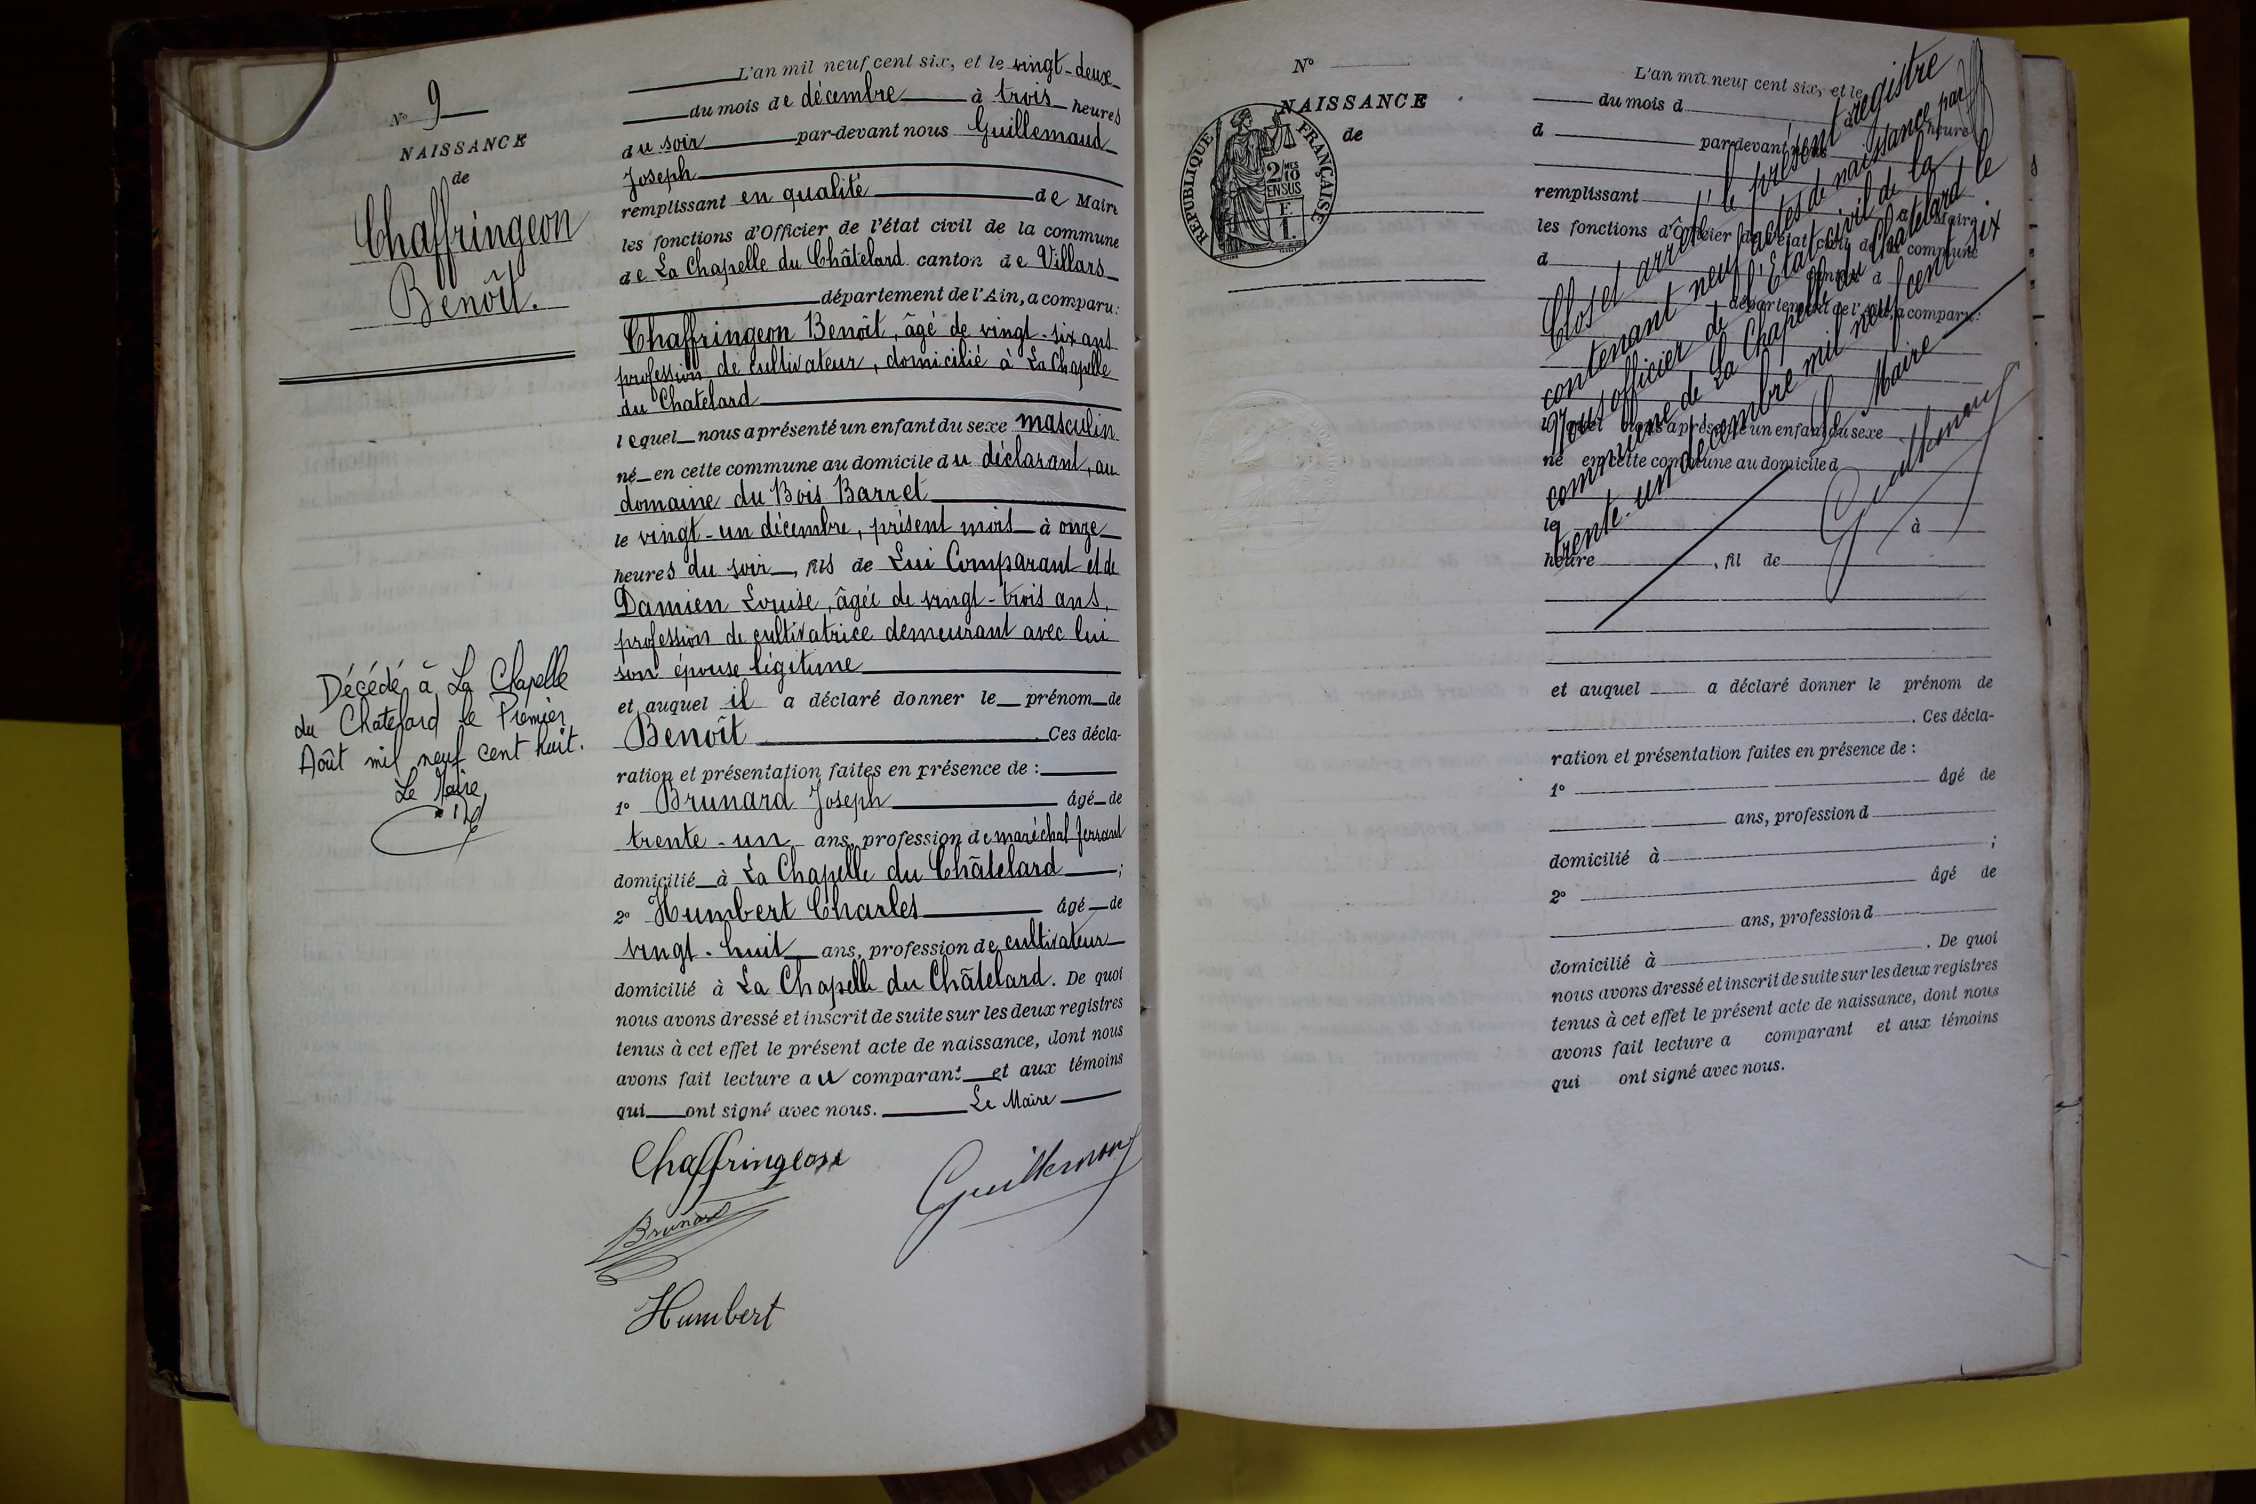 N° 9
NAISSANCE
de
Chaffringeon
Benoît.
Décédé à La Chapelle
du Chatelard le Premier
Août mil neuf cent huit.
Le Maire
L'an mil neuf cent six, et le vingt-deux
du mois de décembre à trois heures
du soir par-devant nous Guillemaud
Joseph
remplissant en qualité de Maire
les fonctions d'Officier de l'état civil de la commune
de La Chapelle du Châtelard canton de Villars
département de l'Ain, a comparu:
Chaffringeon Benoît, âgé de vingt-six ans
profession de cultivateur, domicilié à La Chapelle
du Chatelard
lequel nous a présenté un enfant du sexe masculin
né en cette commune au domicile du déclarant, au
domaine du Bois Barret
le vingt-un décembre, présent mois à onze
heures du soir, fils de Lui Comparant et de
Damien Louise, âgée de vingt-trois ans,
profession de cultivatrice demeurant avec lui
son épouse légitime
et auquel il a déclaré donner le prénom de
Benoît Ces décla-
ration et présentation faites en présence de :
1° Brunard Joseph âgé de
trente-un ans, profession de maréchal ferrant
domicilié à La Chapelle du Châtelard ;
2° Humbert Charles âgé de
vingt-huit ans, profession de cultivateur
domicilié à La Chapelle du Châtelard. De quoi
nous avons dressé et inscrit de suite sur les deux registres
tenus à cet effet le présent acte de naissance, dont nous
avons fait lecture au comparant et aux témoins
qui ont signé avec nous. Le Maire
Chaffringeon
Guillemaud
Brunard
Humbert
N°
NAISSANCE
de
RÉPUBLIQUE FRANÇAISE
2/10 MES
EN SUS
F.
1.
L'an mil neuf cent six, et le
du mois d à heure
d par-devant nous
remplissant d Maire
les fonctions d'Officier de l'état civil de la commune
d canton d
département de l'Ain, a comparu:
lequel nous a présenté un enfant du sexe
né en cette commune au domicile d
le à
heure , fil de
Clos et arrêté le présent registre
contenant neuf actes de naissance par
Nous officier de l'Etat civil de la
commune de La Chapelle du Chatelard le
trente-un décembre mil neuf cent six
Le Maire
Guillemaud
et auquel a déclaré donner le prénom de
. Ces décla-
ration et présentation faites en présence de :
1° âgé de
ans, profession d
domicilié à ;
2° âgé de
ans, profession d
domicilié à . De quoi
nous avons dressé et inscrit de suite sur les deux registres
tenus à cet effet le présent acte de naissance, dont nous
avons fait lecture a comparant et aux témoins
qui ont signé avec nous.